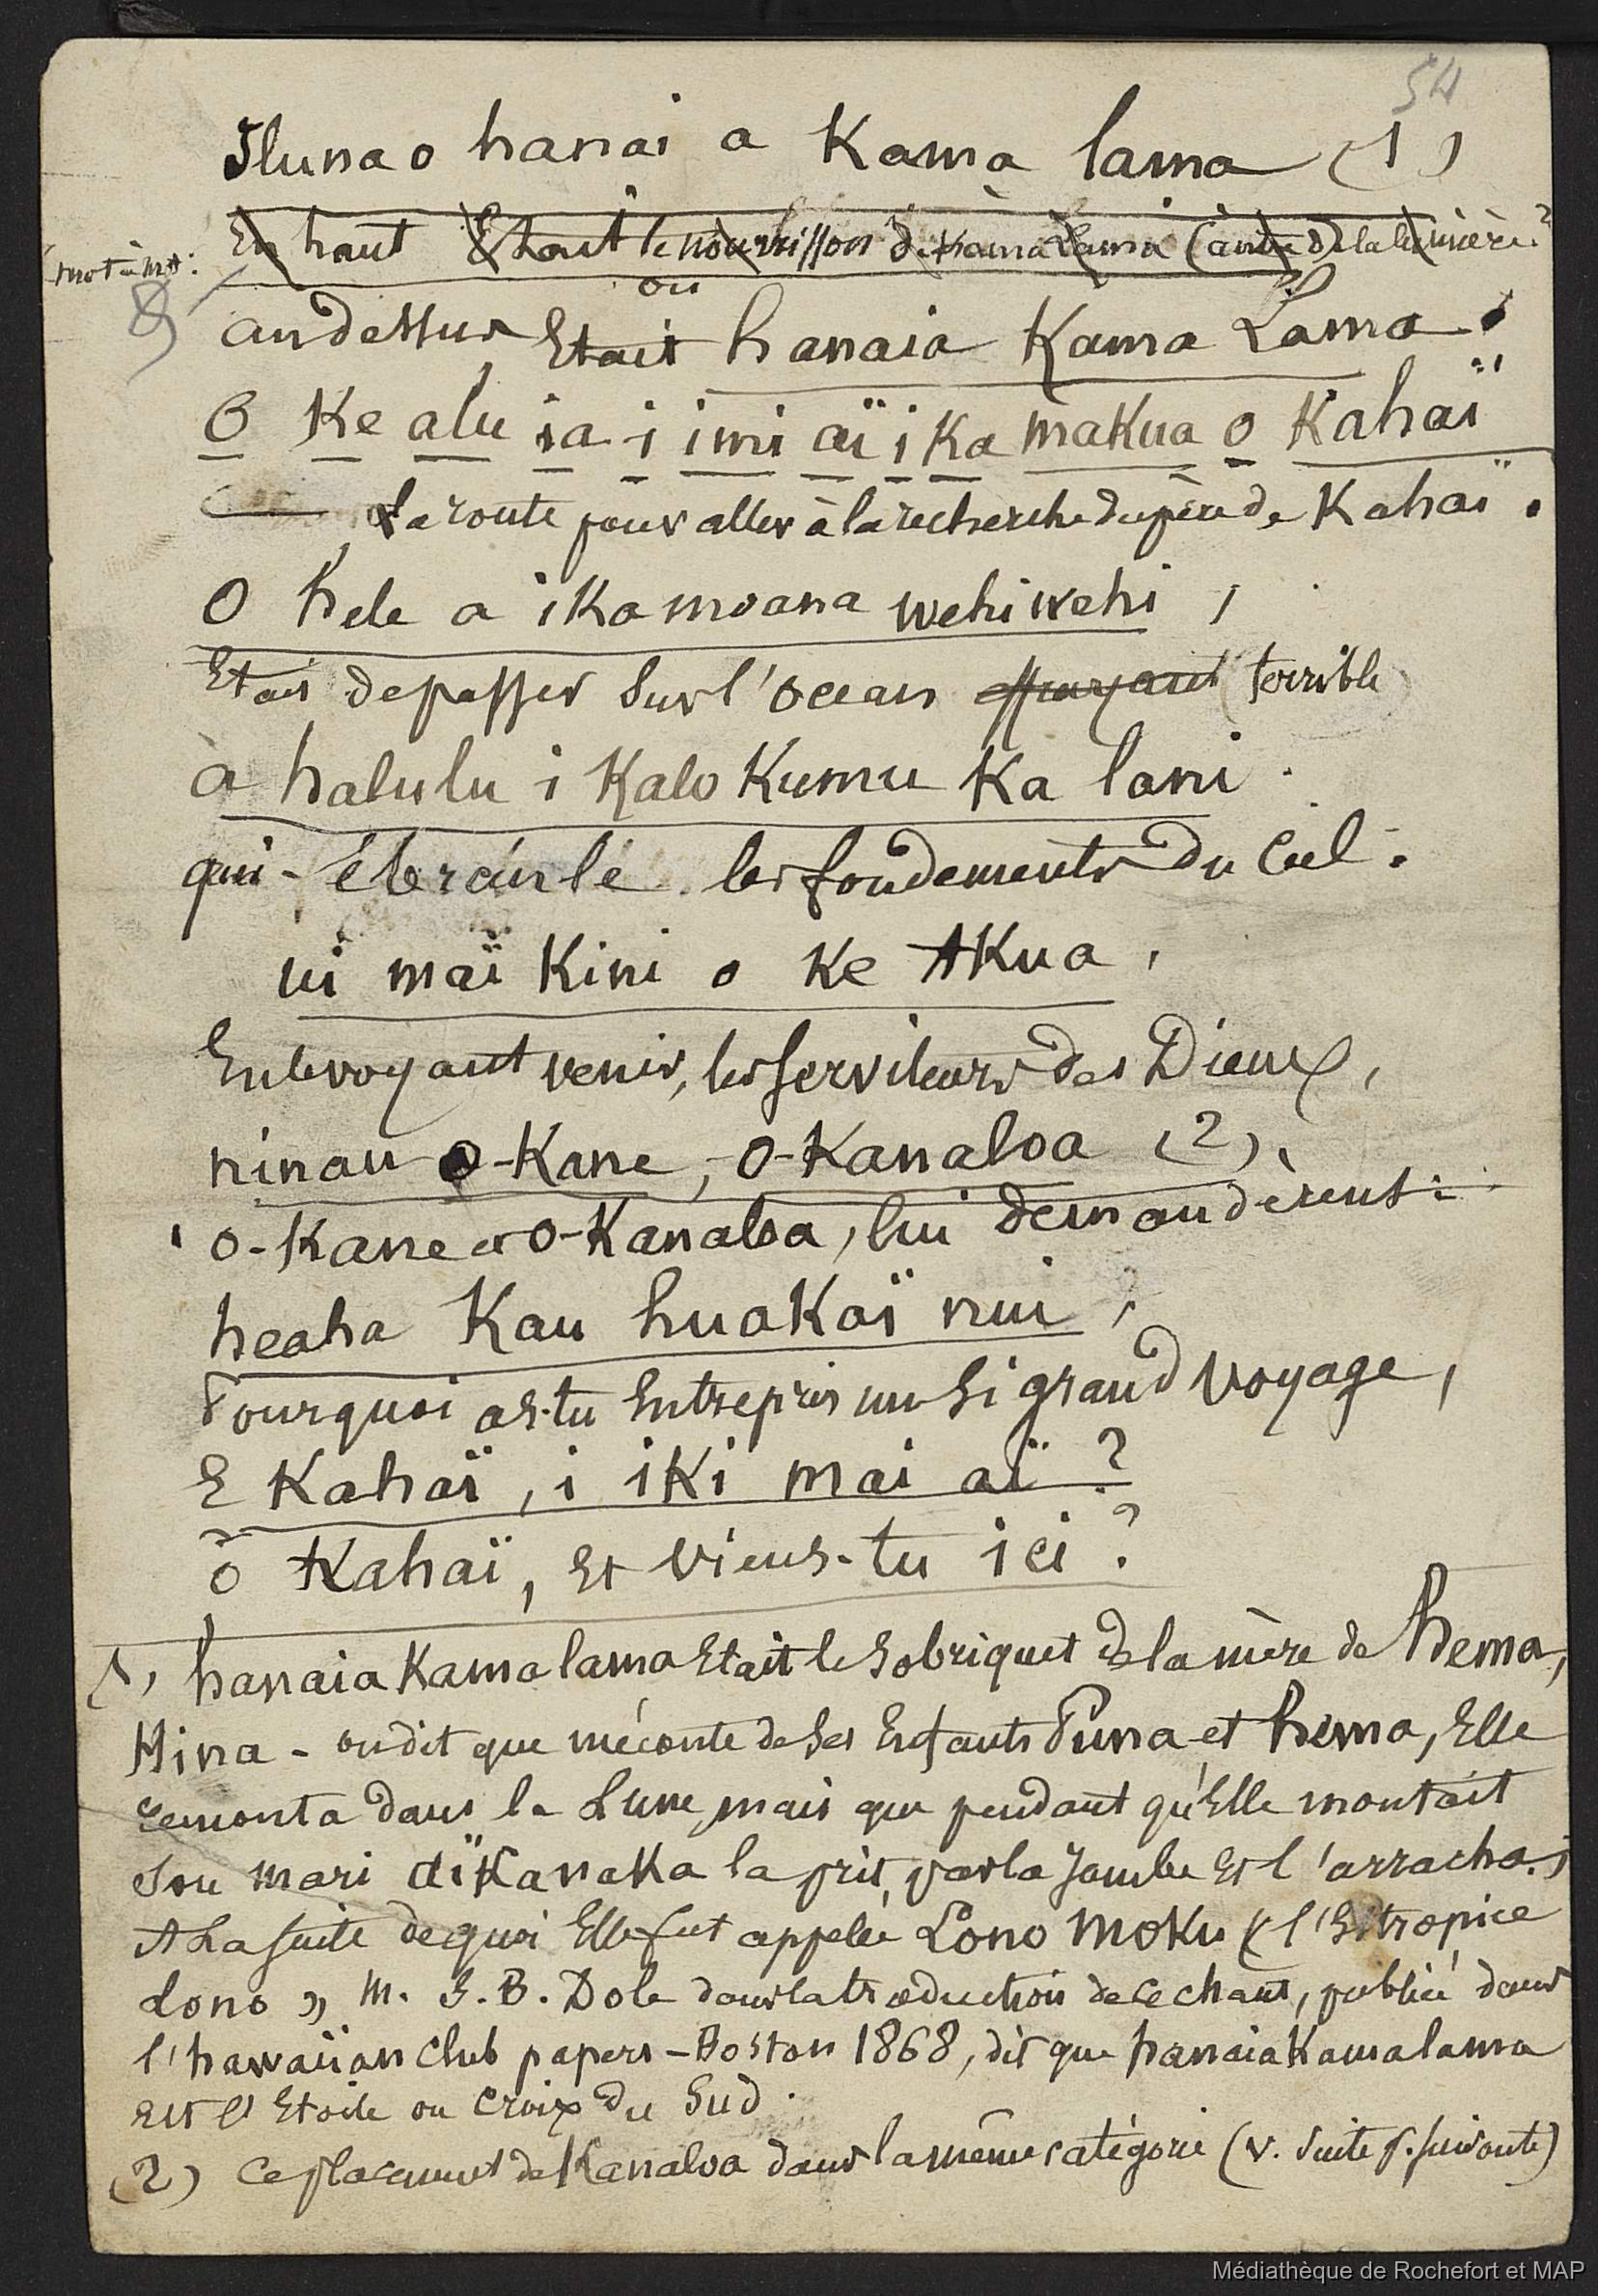 54
Iluna o hanai a Kama lama (1)
En haut Etait le nourrisson de Kama Lama (amie de la lumière?
mot à mot:
ou
au dessus Etait hanaia Kama Lama.
O Ke alu ia i imi aï i Ka makua o Kahaï
La route pour aller à la recherche du père de Kahaï.
O hele a i Ka moana wehiwehi,
Etait de passer Sur l'ocean effrayant terrible
à halulu i Kalo Kumu Ka lani.
qui ébranlé les fondements du Ciel.
ui maï Kini o Ke AKua,
En le voyant venir, les Serviteurs des Dieux,
ninau O-Kane, O-Kanaloa (2),
O-Kane et O-Kanaloa, lui demandèrent:
heaha Kau huaKaï nui,
Pourquoi as-tu Entrepris un Si grand Voyage,
E Kahaï, i iKi mai aï ?
ô Kahaï, Et viens-tu ici ?
(1) hanaia Kama lama Etait le Sobriquet de la mère de hema,
Hina - on dit que méconte de Ses Enfants Puna et hema, Elle
remonta dans la Lune, mais que pendant qu'Elle montait
Son mari aïKanaKa la prit par la Jambe Et l'arracha;
A La Suite de quoi Elle fut appelée Lono MoKu (l'Estropice
Lono » M. S. B. Dole dans la traduction de ce chant, publiée dans
l'hawaiian Club papers - Boston 1868, dit que hanaia Kama lama
Est l'Etoile ou Croix du Sud.
(2) Ce placement de Kanaloa dans la même catégorie (v. Suite p. Suivante)
Médiathèque de Rochefort et MAP